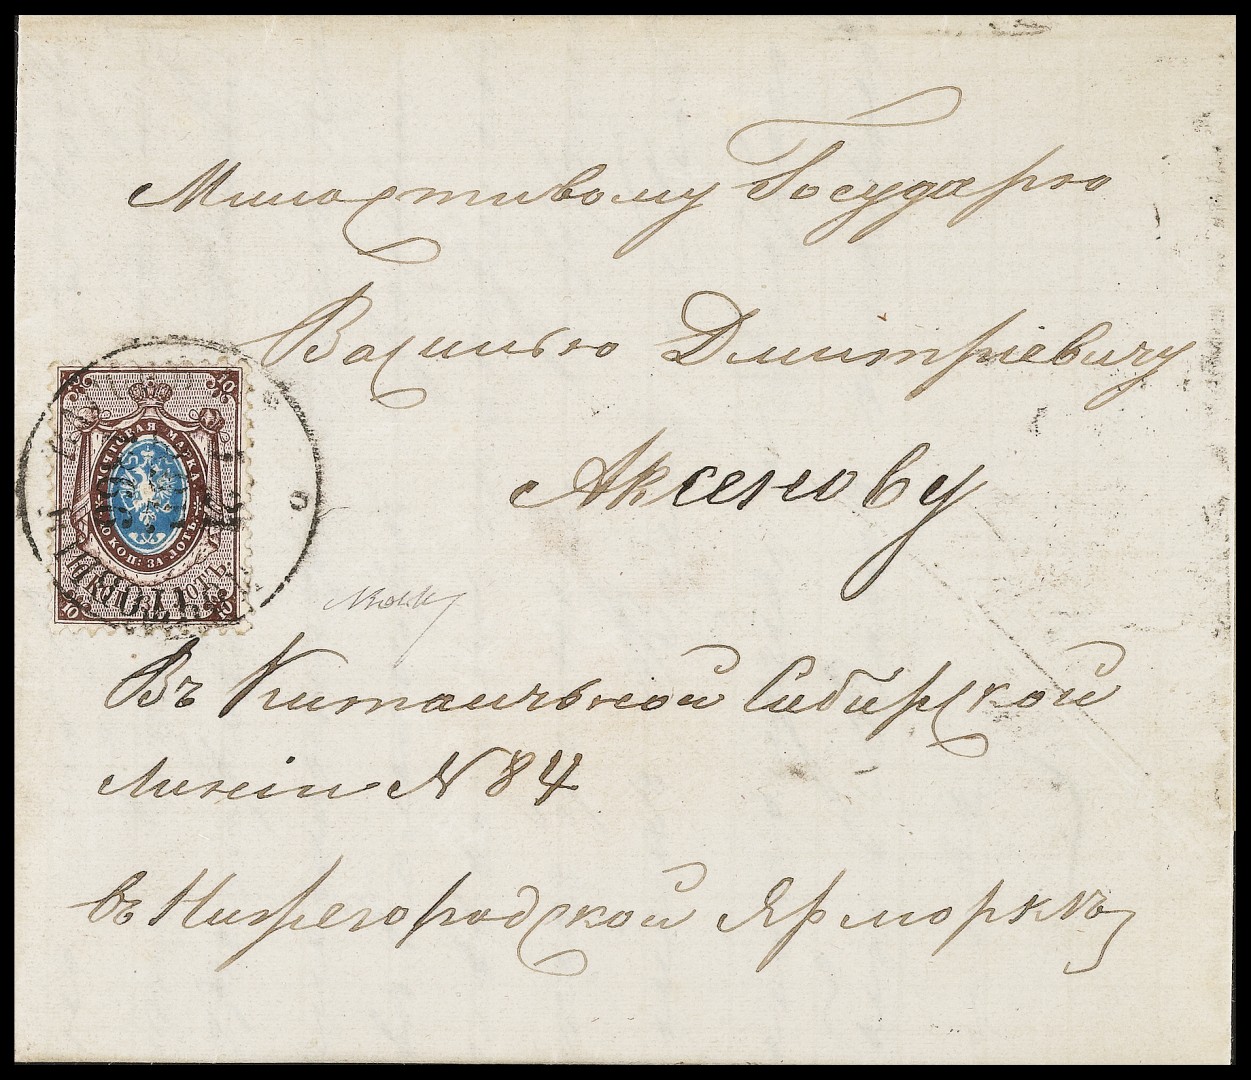 Милостивому Государю
Василью Дмитріевичу
Аксенову
10 10
ПОЧТОВАЯ МАРКА
10 КОП: ЗА ЛОТЪ
10 10
Въ Китаичьной Сибирской
Линіи N 84
въ Нижегородской Ярморкѣ